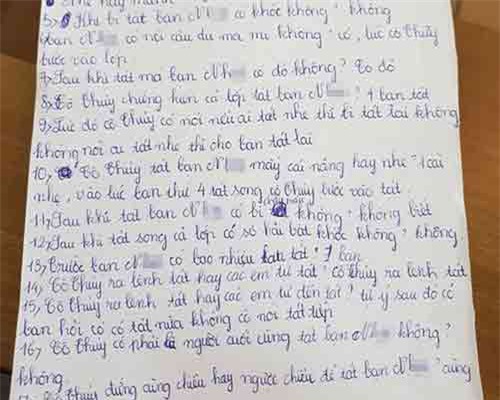 5, Khi bị tát bạn N có khóc không? không
bạn N có nói câu đu ma mi không? có, lúc cô Thủy
bước vào lớp
7, Sau khi tát má bạn N có đỏ không? Đỏ đỏ
8, Cô Thủy chứng kiến cả lớp tát bạn N ? 1 bạn tát
9, Lúc đó cô Thủy có nói nếu ai tát nhẹ thì bị tát lại không
không nói ai tát nhẹ thì cho bạn tát lại
10, Cô Thủy tát bạn N mấy cái nặng hay nhẹ? 1 cái
nhẹ, vào lúc bạn thứ 4 tát song cô Thủy bước vào tát
11, Sau khi tát bạn N có bị chảy máu không? không biết
12, Sau khi tát song cả lớp có sợ hãi bật khóc không? không
13, Trước bạn N có bao nhiêu bạn tát? 7 bạn
14, Cô Thủy ra lệnh tát hay các em tự tát? cô Thủy ra lệnh tát
15, Cô Thủy ra lệnh tát hay các em tự đến tát? tự ý sau đó có
bạn hỏi cô có tát nữa không cô nói tát tiếp
16, Cô Thủy có phải là người cuối cùng tát bạn N không?
không
Cô Thủy đứng cùng chiều hay ngược chiều để tát bạn N ? cùng